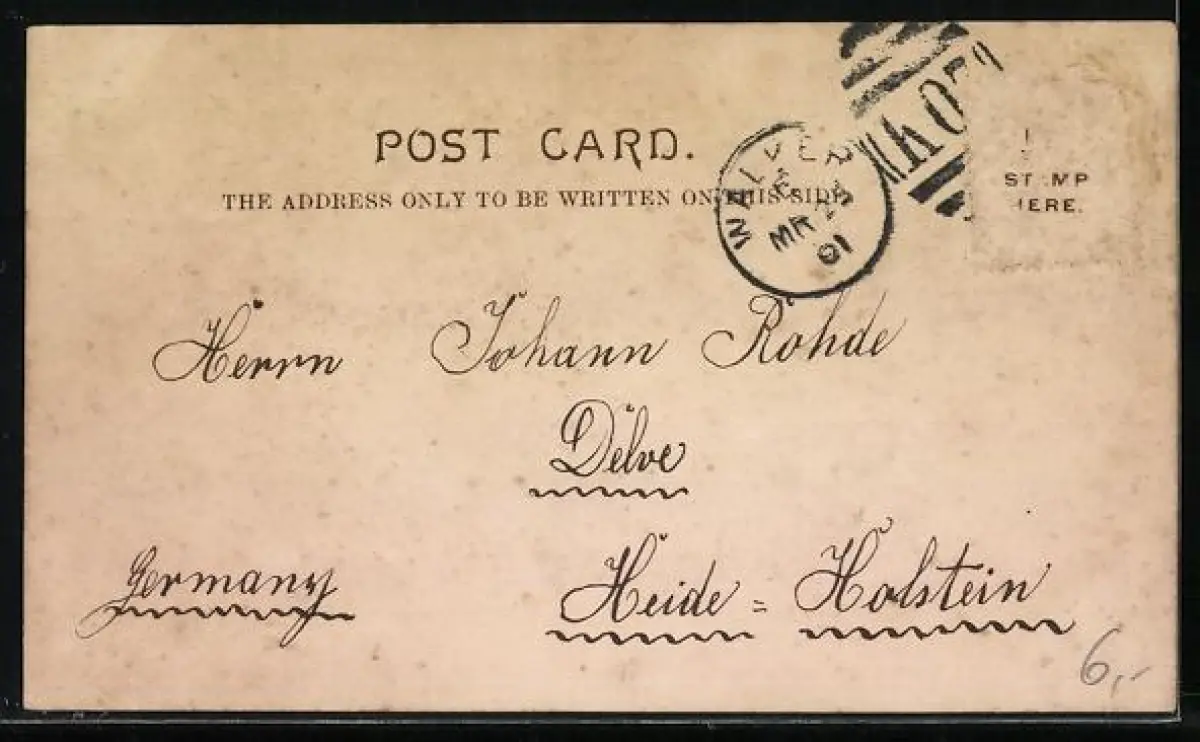 POST CARD.
THE ADDRESS ONLY TO BE WRITTEN ON THIS SIDE
MR 25
01
K07
HERE.
Herrn Johann Rohde
Delve
Germany Heide = Holstein
6,-